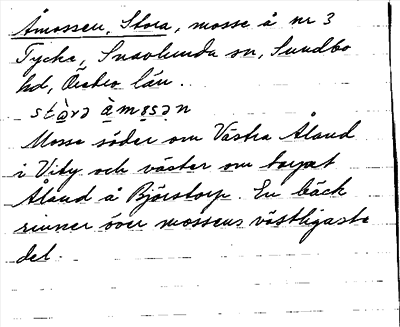 Åmossen, Stora, mosse å nr 3
Tycke, Snavlunda sn, Sundbo
hd, Örebro län.
stɷ̀rə à̤mɷsən
Mosse söder om Västra Åland
i Vity och väster om torpet
Åland å Björstorp. En bäck
rinner över mossens västligaste
del.